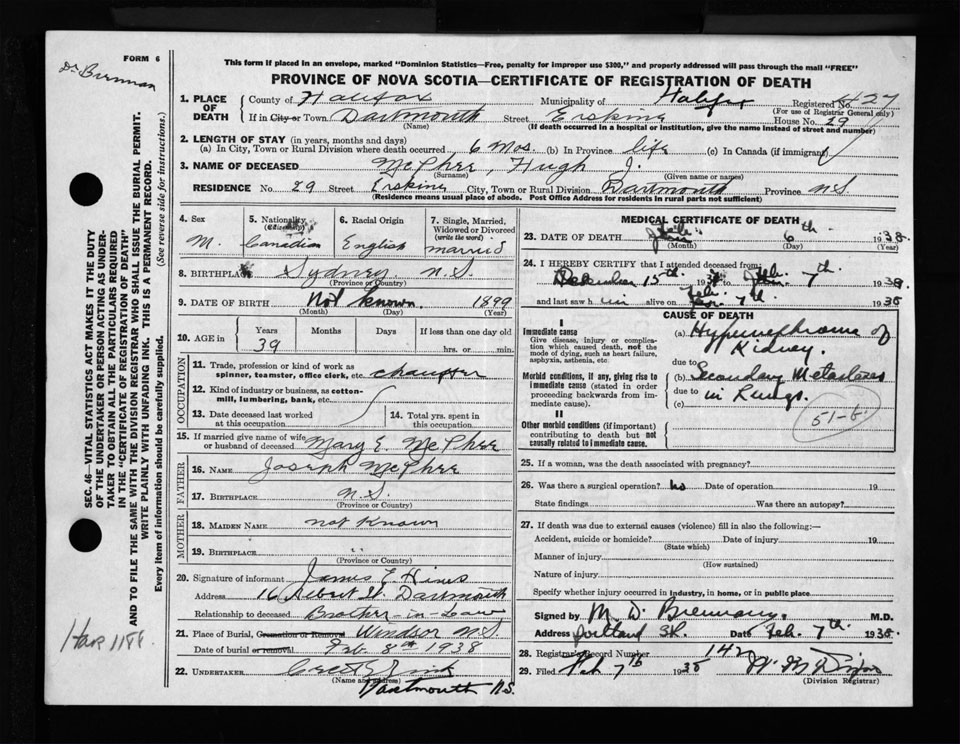 FORM 6
Dr Brennan
This form if placed in an envelope, marked "Dominion Statistics—Free, penalty for improper use $300," and properly addressed will pass through the mail "FREE"
PROVINCE OF NOVA SCOTIA—CERTIFICATE OF REGISTRATION OF DEATH
1. PLACE OF DEATH
County of Halifax Municipality of Halifax Registered No. 427
(For use of Registrar General only)
If in City or Town Dartmouth Street Erskine House No. 29
(Name) (If death occurred in a hospital or institution, give the name instead of street and number)
2. LENGTH OF STAY (in years, months and days)
(a) In City, Town or Rural Division where death occurred 6 Mos. (b) In Province life (c) In Canada (if immigrant)
3. NAME OF DECEASED McPhee, Hugh J.
(Surname) (Given name or names)
RESIDENCE No. 29 Street Erskine City, Town or Rural Division Dartmouth Province N S
(Residence means usual place of abode. Post Office Address for residents in rural parts not sufficient)
4. Sex 5. Nationality 6. Racial Origin 7. Single, Married, Widowed or Divorced
(Citizenship) (write the word)
M. Canadian English married
8. BIRTHPLACE Sydney N.S.
(Province or Country)
9. DATE OF BIRTH Not known. 1899
(Month) (Day) (Year)
10. AGE in Years Months Days If less than one day old
39 hrs. or min.
OCCUPATION
11. Trade, profession or kind of work as spinner, teamster, office clerk, etc. chauffer
12. Kind of industry or business, as cotton-mill, lumbering, bank, etc.
13. Date deceased last worked at this occupation
14. Total yrs. spent in this occupation
15. If married give name of wife or husband of deceased Mary E. McPhee
FATHER
16. NAME Joseph McPhee
17. BIRTHPLACE N.S.
(Province or Country)
MOTHER
18. MAIDEN NAME not known
19. BIRTHPLACE "
(Province or Country)
20. Signature of informant James E. Hines
Address 16 Albert St. Dartmouth
Relationship to deceased Brother-in-Law
21. Place of Burial, Cremation or Removal Windsor N.S.
Date of burial or removal Feb. 8th 1938
22. UNDERTAKER
(Name and address)
Dartmouth N.S.
MEDICAL CERTIFICATE OF DEATH
23. DATE OF DEATH 6th 1938.
(Month) (Day) (Year)
24. I HEREBY CERTIFY that I attended deceased from:
December 15th 193 to Feb. 7th 1938.
and last saw h im alive on Feb. 7th 1938
CAUSE OF DEATH
I
Immediate cause
Give disease, injury or complication which caused death, not the mode of dying, such as heart failure, asphyxia, asthenia, etc.
(a) Hypernephroma of Kidney.
due to
Morbid conditions, if any, giving rise to immediate cause (stated in order proceeding backwards from immediate cause).
(b) Secondary Metastases
due to in Lungs.
(c)
II
Other morbid conditions (if important) contributing to death but not causally related to immediate cause.
25. If a woman, was the death associated with pregnancy?
26. Was there a surgical operation? No Date of operation 19
State findings Was there an autopsy?
27. If death was due to external causes (violence) fill in also the following:—
Accident, suicide or homicide? Date of injury 19
(State which)
Manner of injury
(How sustained)
Nature of injury
Specify whether injury occurred in industry, in home, or in public place
Signed by M. D. Brennan M.D.
Address Portland St. Date Feb. 7th 1938.
28. Registrar's Record Number 142
29. Filed Feb 7th 1938
(Division Registrar)
SEC. 46—VITAL STATISTICS ACT MAKES IT THE DUTY
OF THE UNDERTAKER OR PERSON ACTING AS UNDER-
TAKER TO OBTAIN ALL THE PARTICULARS REQUIRED
IN THE "CERTIFICATE OF REGISTRATION OF DEATH"
AND TO FILE THE SAME WITH THE DIVISION REGISTRAR WHO SHALL ISSUE THE BURIAL PERMIT.
WRITE PLAINLY WITH UNFADING INK. THIS IS A PERMANENT RECORD.
Every item of information should be carefully supplied. (See reverse side for instructions.)